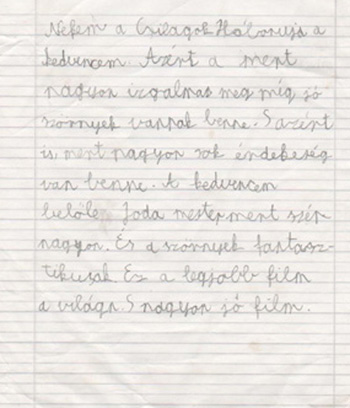 Nekem a Csilagok Háboruja a
kedvencem. Azért a mert
nagyon izgalmas meg míg jó
szörnyek vannak benne. S azért
is, mert nagyon sok érdekeség
van benne. A kedvencem
belőle Joda mester mert szér
nagyon. És a szörnyek fantasz-
tikusak Ez a legjobb film
a világn. S nagyon jó film.